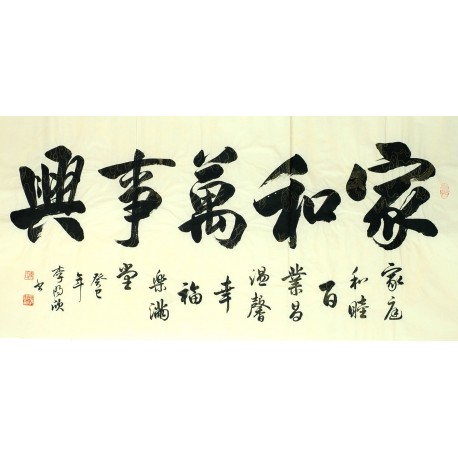 家和萬事興
家庭
和睦
百
業昌
温馨
幸
福
樂滿
堂
癸巳
年
李
书